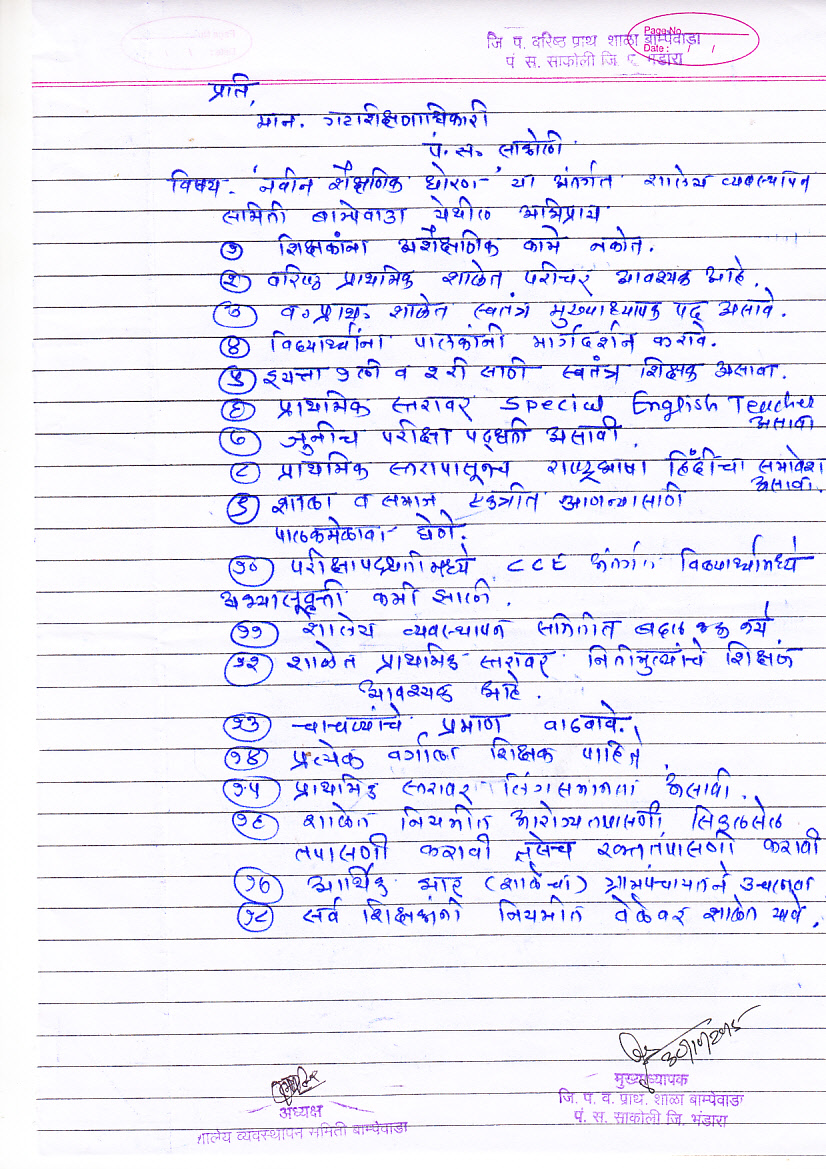 जि प. वरिष्ठ प्राथ शाळा बाम्पेवाडा
पं स. साकोली जि प. भंडारा
Page No.
Date : / /
प्रति,
मान. गटशिक्षणाधिकारी
पं. स. साकोली
विषय - नवीन शैक्षणिक धोरण या अंतर्गत शालेय व्यवस्थापन
समिती बाम्पेवाडा येथील अभिप्राय
१ शिक्षकांना अशैक्षणिक कामे नकोत.
२ वरिष्ठ प्राथमिक शाळेत परीचर आवश्यक आहे.
३ व. प्राथ. शाळेत स्वतंत्र मुख्याध्यापक पद असावे.
४ विद्यार्थ्यांना पालकांनी मार्गदर्शन करावे.
५ इयत्ता १ली व २री साठी स्वतंत्र शिक्षक असावा.
६ प्राथमिक स्तरावर Special English Teacher
असावा
७ जुनीच परीक्षा पद्धती असावी.
८ प्राथमिक स्तरापासूनच राष्ट्रभाषा हिंदीचा समावेश
असावा.
९ शाळा व समाज एकत्रीत आणन्यासाठी
पालकमेळावा घेणे.
१० परीक्षापद्धतीमध्ये CCE अंतर्गत विद्यार्थ्यामध्ये
अभ्यासूवृत्ती कमी झाली.
११ शालेय व्यवस्थापन समितीत बदल करु नये
१२ शाळेत प्राथमिक स्तरावर नितीमुल्यांचे शिक्षण
आवश्यक आहे.
१३ चाचण्यांचे प्रमाण वाढवावे.
१४ प्रत्येक वर्गाला शिक्षक पाहिजे
१५ प्राथमिक स्तरावर लिंगसमानता असावी.
१६ शाळेत नियमीत आरोग्यतपासणी, सिकलसेल
तपासणी करावी तसेच रक्ततपासणी करावी
१७ आर्थिक भार (शाळेचा) ग्रामपंचायतने उचलावा
१८ सर्व शिक्षकांनी नियमीत वेळेवर शाळेत यावे.
मुख्याध्यापक
जि. प. व. प्राथ. शाळा बाम्पेवाडा
पं. स. साकोली जि. भंडारा
अध्यक्ष
शालेय व्यवस्थापन समिती बाम्पेवाडा